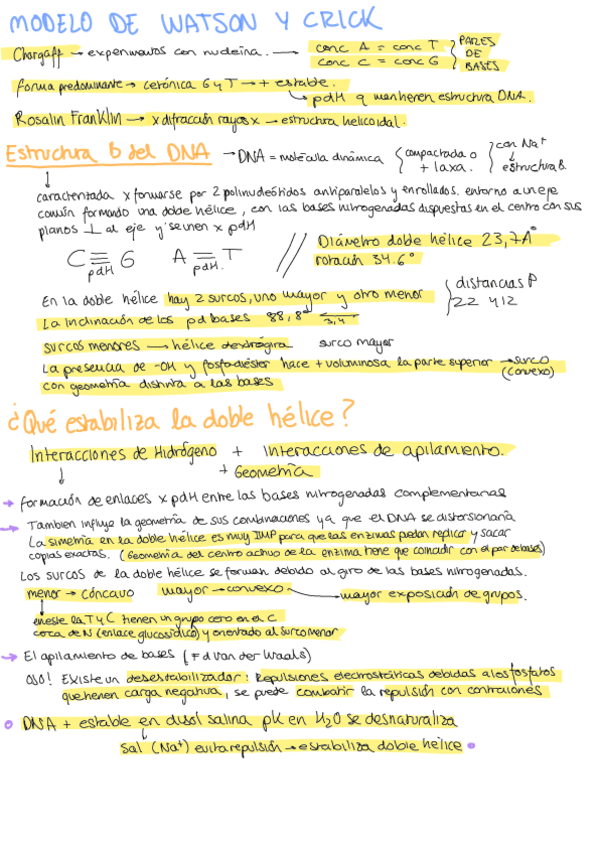 MODELO DE WATSON Y CRICK
Chargaff → experimentos con nucleína. → conc A = conc T } PARES DE BASES
conc C = conc G
forma predominante → cetónica G y T → + estable.
↳ pdH q mantienen estructura DNA.
Rosalin Franklin → x difracción rayos x → estructura helicoidal.
Estructura B del DNA → DNA = molécula dinámica { compactada o + laxa. { con Na+ ↓ estructura B.
caracterizada x formarse por 2 polinucleótidos antiparalelos y enrollados. entorno a un eje
común formando una doble hélice, con las bases nitrogenadas dispuestas en el centro con sus
planos ⊥ al eje y se unen x pdH
C ≡ G A = T // Diámetro doble hélice 23,7 A°
pdH pdH. rotación 34.6°
En la doble hélice hay 2 surcos, uno mayor y otro menor { distancias P
22 y 12
La inclinación de los pd bases 88,8° 3,4
surcos menores → hélice dendrógira surco mayor
La presencia de -OH y fosfodiéster hace + voluminosa la parte superior → surco
con geometría distinta a las bases (convexo)
¿Qué estabiliza la doble hélice?
Interacciones de Hidrógeno + Interacciones de apilamiento.
+ Geometría
→ formación de enlaces x pdH entre las bases nitrogenadas complementarias
→ Tambien influye la geometría de sus combinaciones ya que el DNA se distorsionaría
La simetría en la doble hélice es muy IMP para que las enzimas puedan replicar y sacar
copias exactas. (Geometría del centro activo de la enzima tiene que coincidir con el par de bases)
Los surcos de la doble hélice se forman debido al giro de las bases nitrogenadas.
menor → cóncavo mayor → convexo → mayor exposición de grupos.
en este la T y C tienen un grupo ceto en el C
cerca de N (enlace glucosídico) y orientado al surco menor
→ El apilamiento de bases (F d van der Waals)
OJO! Existe un desestabilizador: Repulsiones electrostáticas debidas a los fosfatos
que tienen carga negativa, se puede combatir la repulsión con contraiones
DNA + estable en disol salina pk en H2O se desnaturaliza
sal (Na+) evita repulsión → estabiliza doble hélice